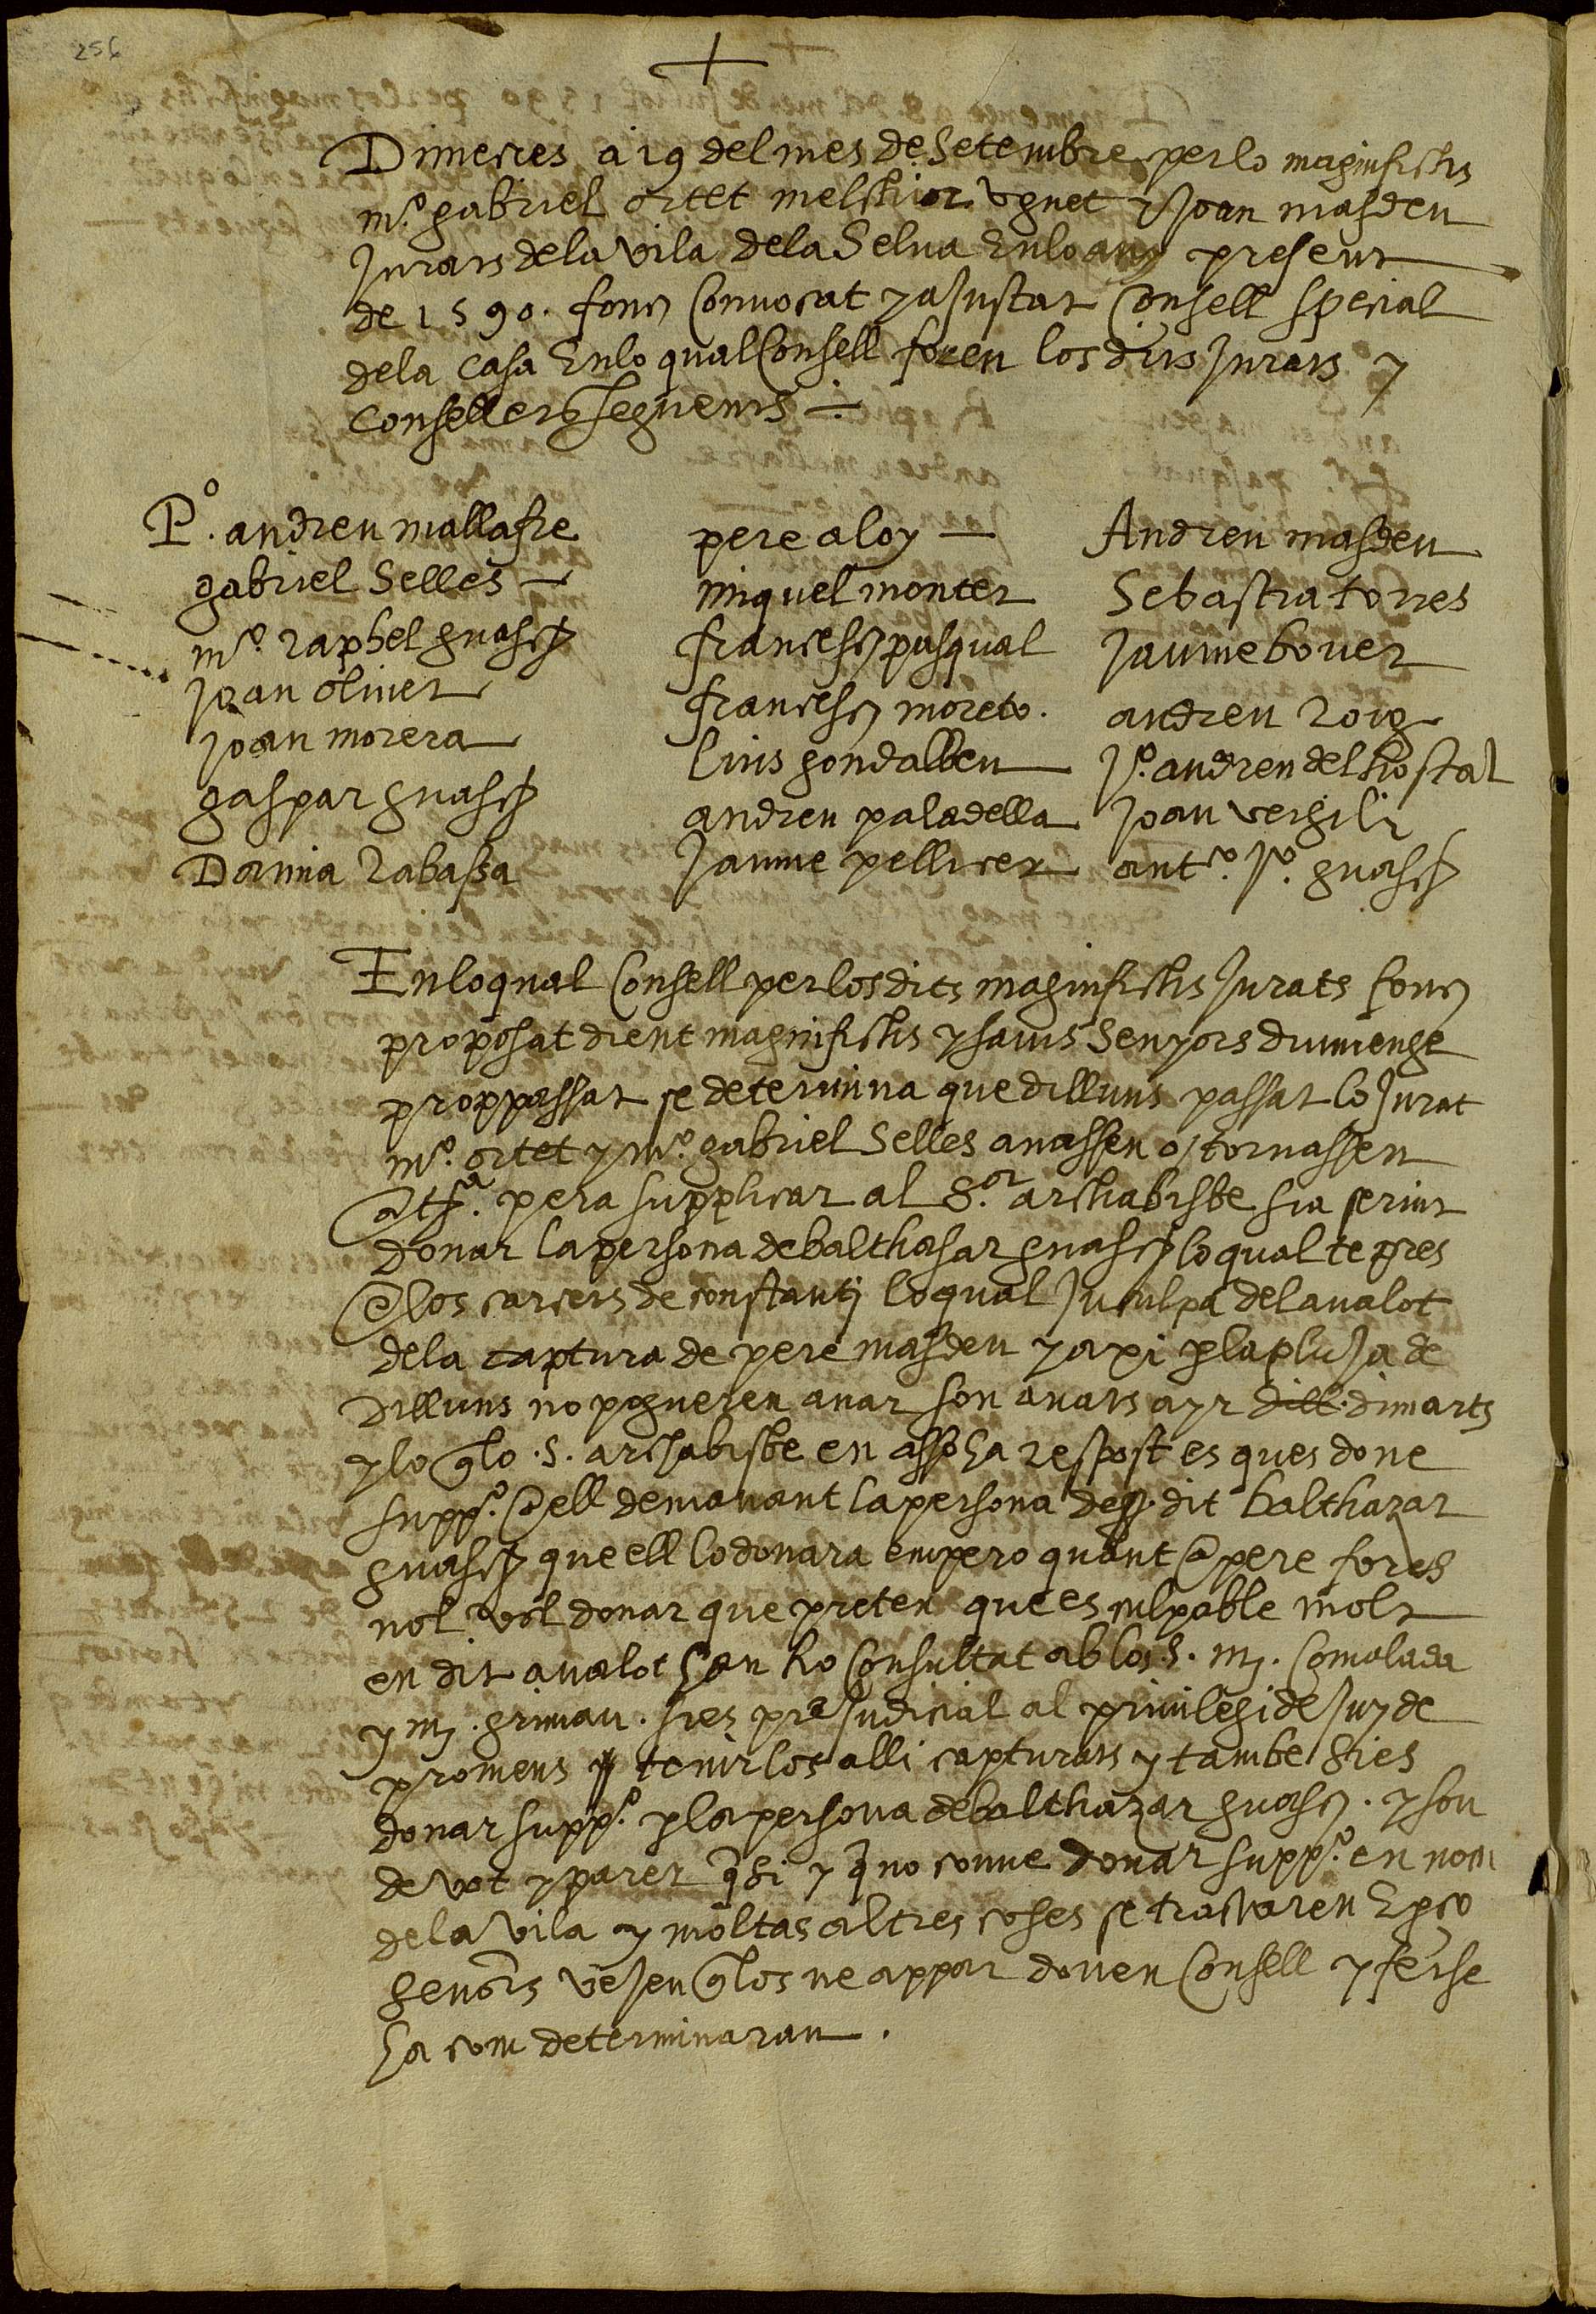 256
+
Dimecres a 19 del mes de Setembre per lo magnifichs
mº. gabriel ortet melchior vguet y Joan masdeu
Jurats dela vila dela Selua Enlo any present
de 1590. fonch Convocat y aJustat Consell special
dela casa Enlo qual Consell foren los dits Jurats y
Consellers seguents
Pº. andreu mallafre
gabriel Selles
mº. raphel guasch
Joan oliuer
Joan morera
gaspar guasch
Damia Rabassa
pere aloy
miquel monter
francesch pasqual
francesch moreto.
luis gondalbeu
andreu paladella
Jaume pellicer
Andreu masdeu
Sebastia torres
Jaume bouer
andreu Roig
Jº. andreu del hostal
Joan vergili
antº. Jº. guasch
Enloqual Consell per los dits magnifichs Jurats fonch
proposat dient magnifichs y sauis Senyors diumenge
proppassat se determina que dilluns passat lo Jurat
mº. ortet y mº. gabriel Selles anassen o tornassen
pera supplicar al Sor. archabisbe sia seruit
donar la persona de balthasar guasch lo qual te pres
@ los carcers de constanti lo qual Inculpa del aualot
dela captura de pere masdeu y axi p la pluJa de
Dilluns no pogueren anar son anats ayr dill. dimarts
y lo q lo .S. archabisbe en asso ha respost es ques done
suppº. @ ell demanant la persona de dit balthazar
guasch que ell lo donara empero quant @ pere fores
nol vol donar que preten que es culpable molt
en dit aualot han ho Consultat ab los S. mj. Comalada
y mj. grimau. si es preJudicial al priuilegi de Juy de
promens p tenirlos alli capturats y tambe si es
donar suppº. p la persona de balthazar guasch. y son
de vot y parer q si y q no conue donar suppº. en nom
dela vila y moltas altres coses se tractaren E p ço
senors veJen q los ne appar donen Consell y ferse
ha com determinaran.